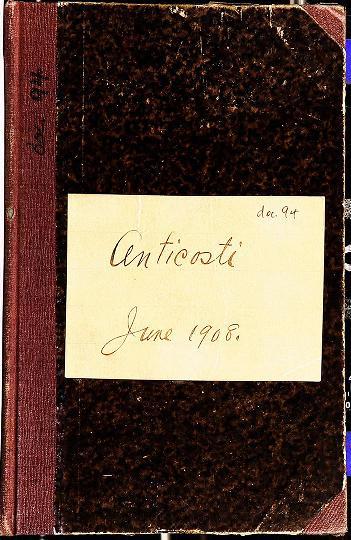 doc. 94
doc. 94
Anticosti
June 1908.